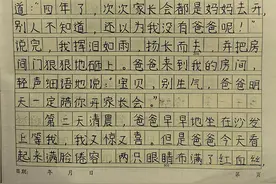 道："四年了，次次家长会都是妈妈去开，
别人不知道，还以为我没有爸爸呢！"
说完，我挥泪如雨，扬长而去，并把房
间门狠狠地砸上。爸爸来到我的房间，
轻声细语地说："宝贝，别生气，爸爸明
天一定陪你开家长会。"
第二天清晨，爸爸早早地坐在沙发
上等我，我又惊又喜。但是爸爸今天看
起来满脸倦容，两只眼睛布满了红血丝
年 月 日